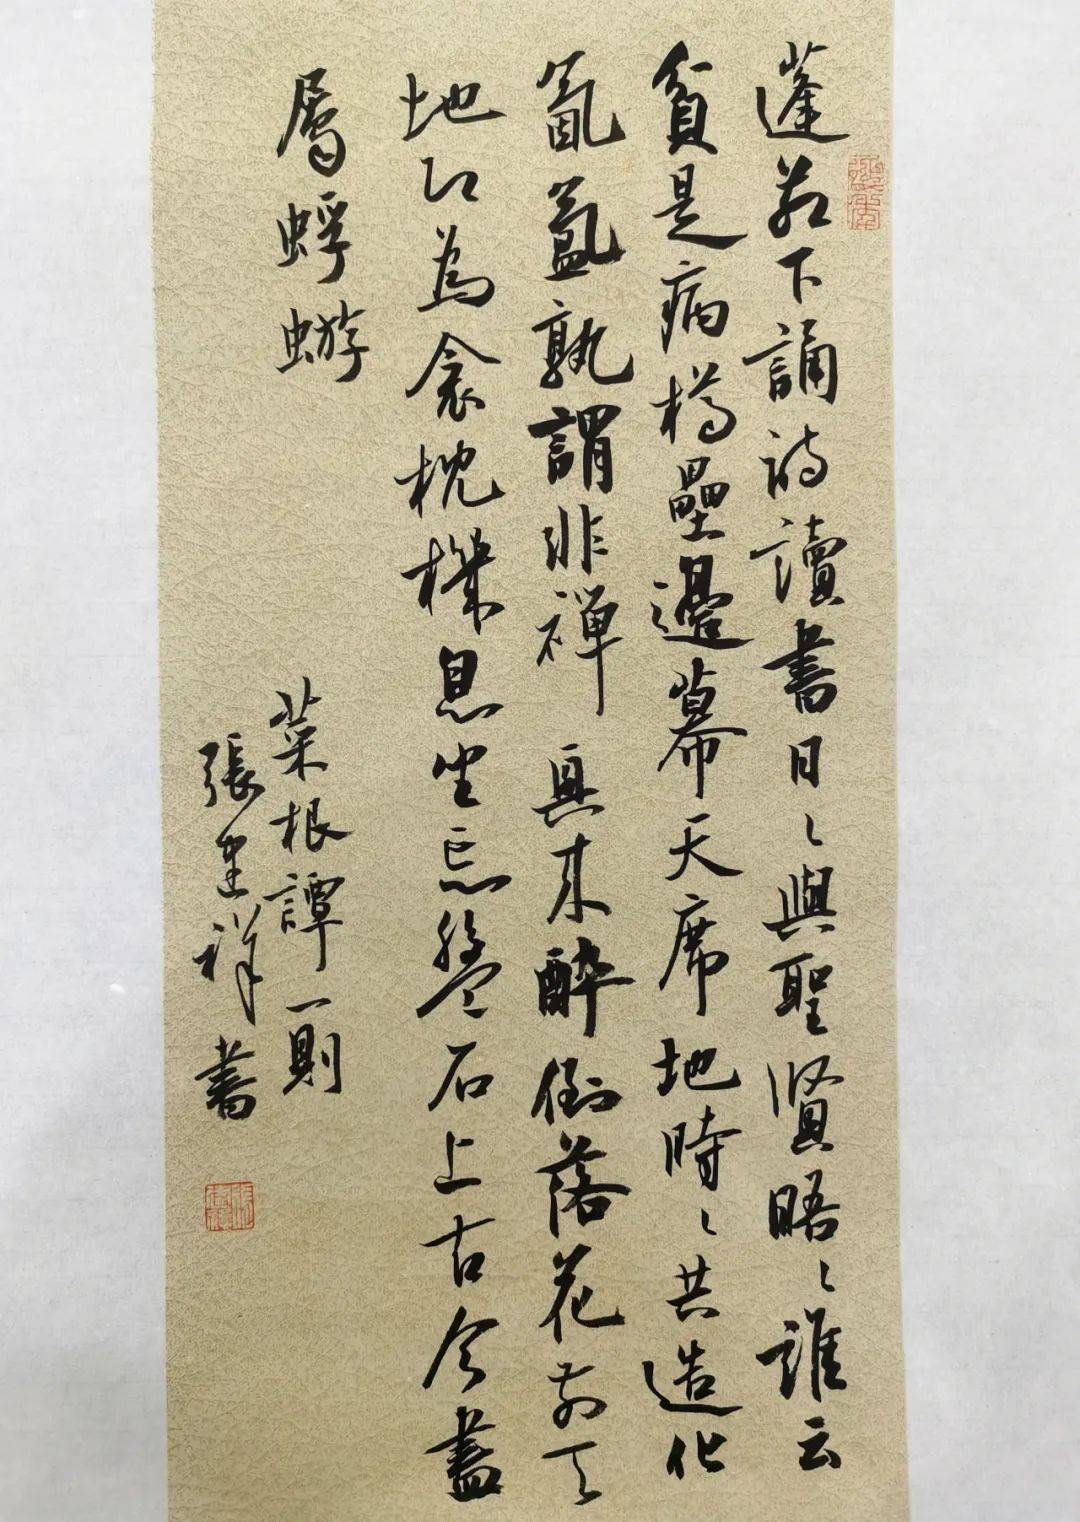 蓬茅下誦詩讀書日々與聖賢晤々誰云
貧是病樽壘邊幕天席地時々共造化
氤氳孰謂非禪興來醉倒落花前天
地即為衾枕機息坐忘盤石上古今盡
屬蜉蝣
菜根譚一則
張建祥書